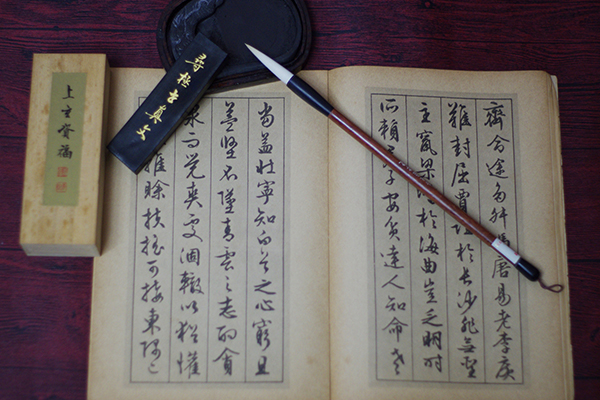 齊命途多舛馮唐易老李廣
難封屈賈於長沙非無聖
主竄梁鴻於海曲豈乏明時
所賴子安貧達人知命老
當益壯寧知白首之心窮且
益堅不墜青雲之志酌貪
泉而覺爽處涸轍以猶懽
雖賒扶搖可接東隅已